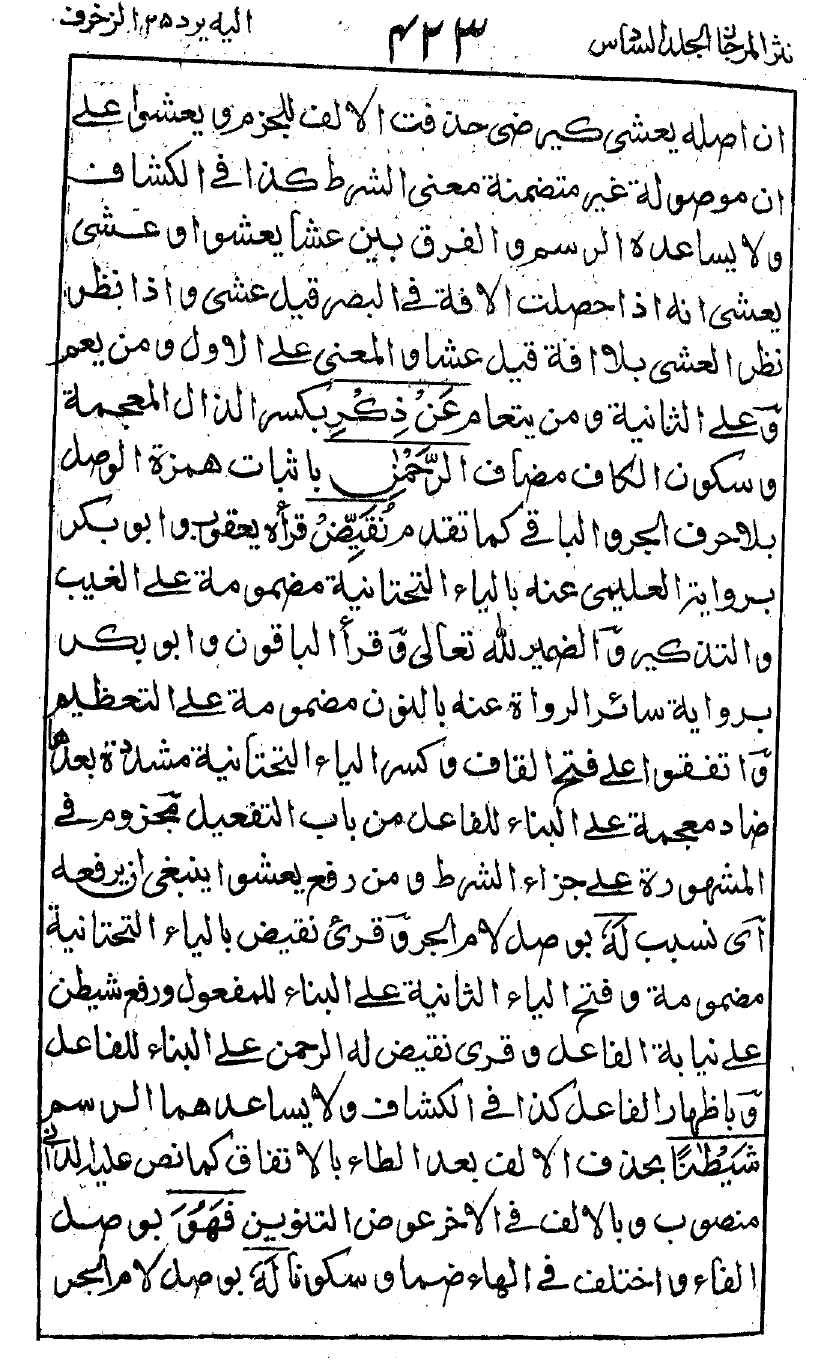 نثر المرجان الجلد السادس ٤٢٣ اليه يرد ٢٥ الزخرف
ان اصله يعشى كيرضى حذفت الالف للجزم و يعشوا على
ان موصولة غير متضمنة معنى الشرط كذا فى الكشاف
ولا يساعده الرسم و الفرق بين عشا يعشوا و عشى
يعشى انه اذا حصلت الافة فى البصر قيل عشى و اذا نظر
نظر العشى بلا افة قيل عشا و المعنى على الاول و من يعم
وَ على الثانية و من يتعام عَنْ ذِكْرِ بكسر الذال المعجمة
و سكون الكاف مضاف الرَّحْمٰنِ باثبات همزة الوصل
بلا حرف الجر و الباقى كما تقدم نُقَيِّضْ قرأه يعقوب و ابو بكر
برواية العليمى عنه بالياء التحتانية مضمومة على الغيب
و التذكير وَ الضمير لله تعالى وَ قرأ الباقون و ابو بكر
برواية سائر الرواة عنه بالنون مضمومة على التعظيم
وَ اتفقوا على فتح القاف و كسر الياء التحتانية مشددة بعدها
ضاد معجمة على البناء للفاعل من باب التفعيل مجزوم فى
المشهورة على جزاء الشرط و من رفع يعشوا ينبغى ان يرفعه
اَى نسبب لَهٗ بوصل لام الجر وَ قرئ نقيض بالياء التحتانية
مضمومة و فتح الياء الثانية على البناء للمفعول و رفع شيطن
على نيابة الفاعل و قرى نقيض له الرحمن على البناء للفاعل
وَ باظهار الفاعل كذا فى الكشاف ولا يساعدهما الرسم
شَيْطٰنًا بحذف الالف بعد الطاء بالاتفاق كما نص عليه الدانى
منصوب و بالالف فى الاخر عوض التنوين فَهُوَ بوصل
الفاء و اختلف فى الهاء ضما و سكونا لَهٗ بوصل لام الجر